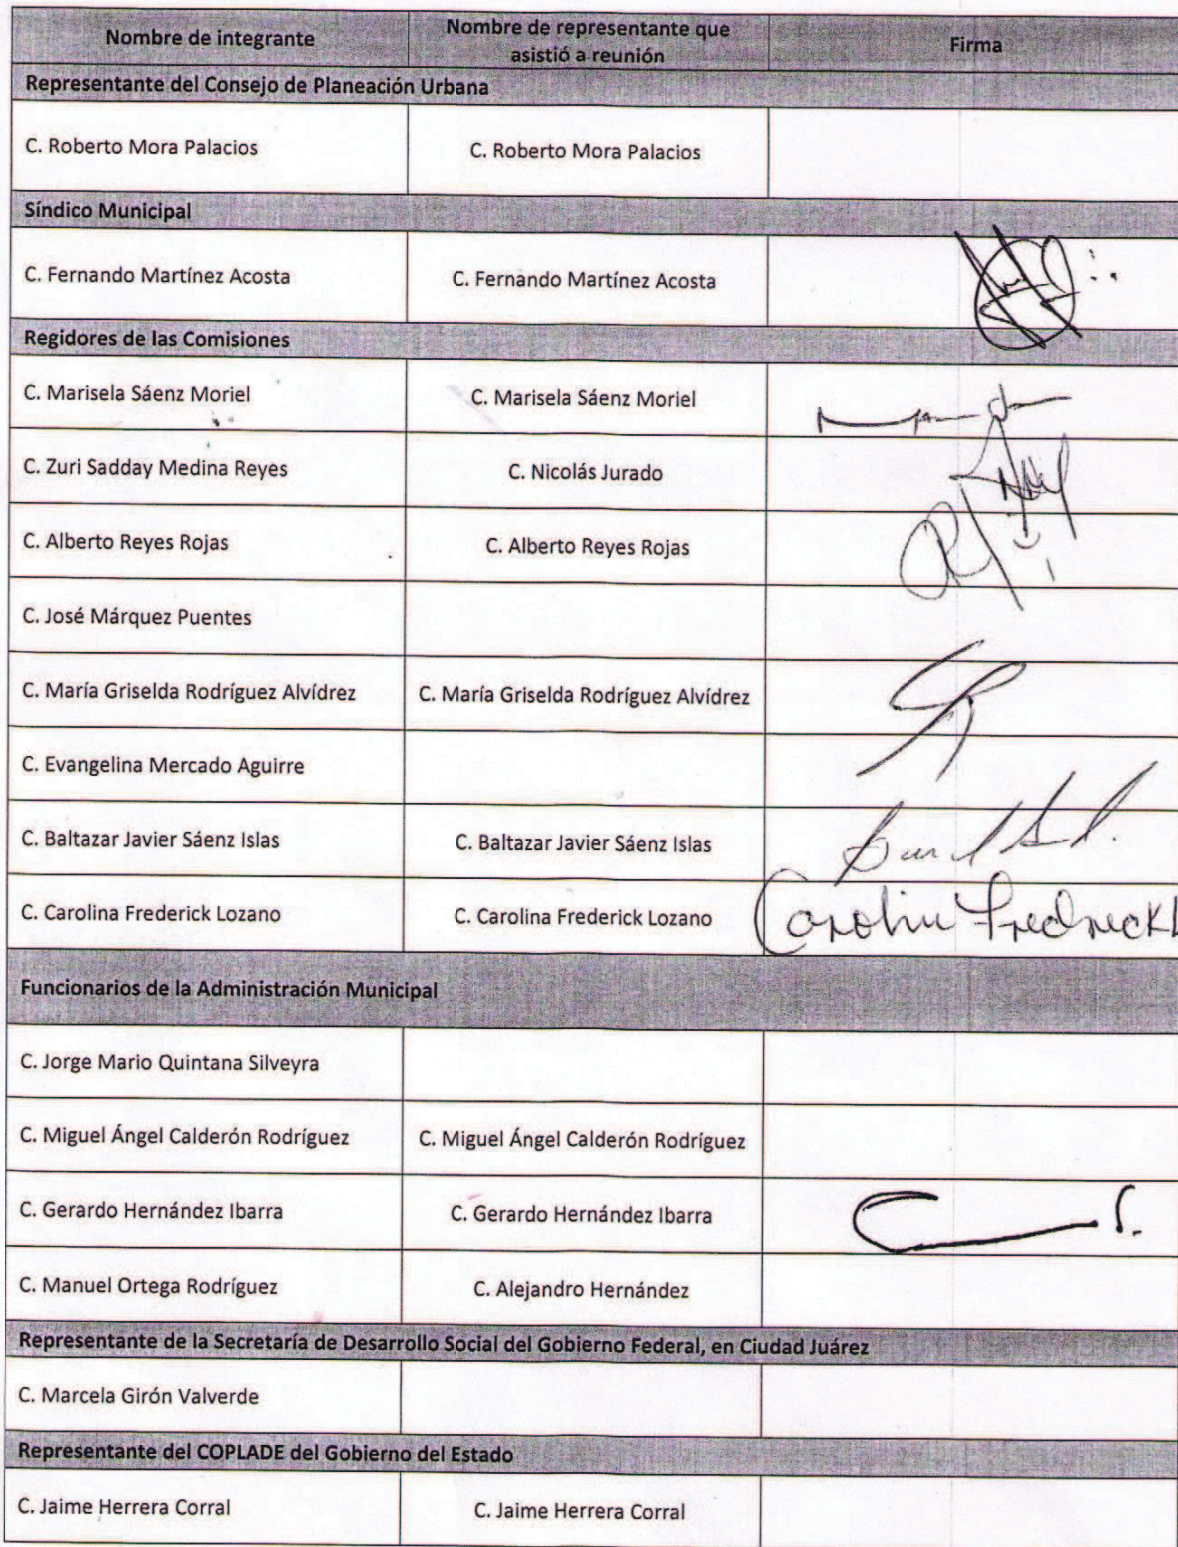 Nombre de integrante
Nombre de representante que
asistió a reunión
Firma
Representante del Consejo de Planeación Urbana
C. Roberto Mora Palacios
C. Roberto Mora Palacios
Síndico Municipal
C. Fernando Martínez Acosta
C. Fernando Martínez Acosta
Regidores de las Comisiones
C. Marisela Sáenz Moriel
C. Marisela Sáenz Moriel
C. Zuri Sadday Medina Reyes
C. Nicolás Jurado
C. Alberto Reyes Rojas
C. Alberto Reyes Rojas
C. José Márquez Puentes
C. María Griselda Rodríguez Alvídrez
C. María Griselda Rodríguez Alvídrez
C. Evangelina Mercado Aguirre
C. Baltazar Javier Sáenz Islas
C. Baltazar Javier Sáenz Islas
C. Carolina Frederick Lozano
C. Carolina Frederick Lozano
Funcionarios de la Administración Municipal
C. Jorge Mario Quintana Silveyra
C. Miguel Ángel Calderón Rodríguez
C. Miguel Ángel Calderón Rodríguez
C. Gerardo Hernández Ibarra
C. Gerardo Hernández Ibarra
C. Manuel Ortega Rodríguez
C. Alejandro Hernández
Representante de la Secretaría de Desarrollo Social del Gobierno Federal, en Ciudad Juárez
C. Marcela Girón Valverde
Representante del COPLADE del Gobierno del Estado
C. Jaime Herrera Corral
C. Jaime Herrera Corral